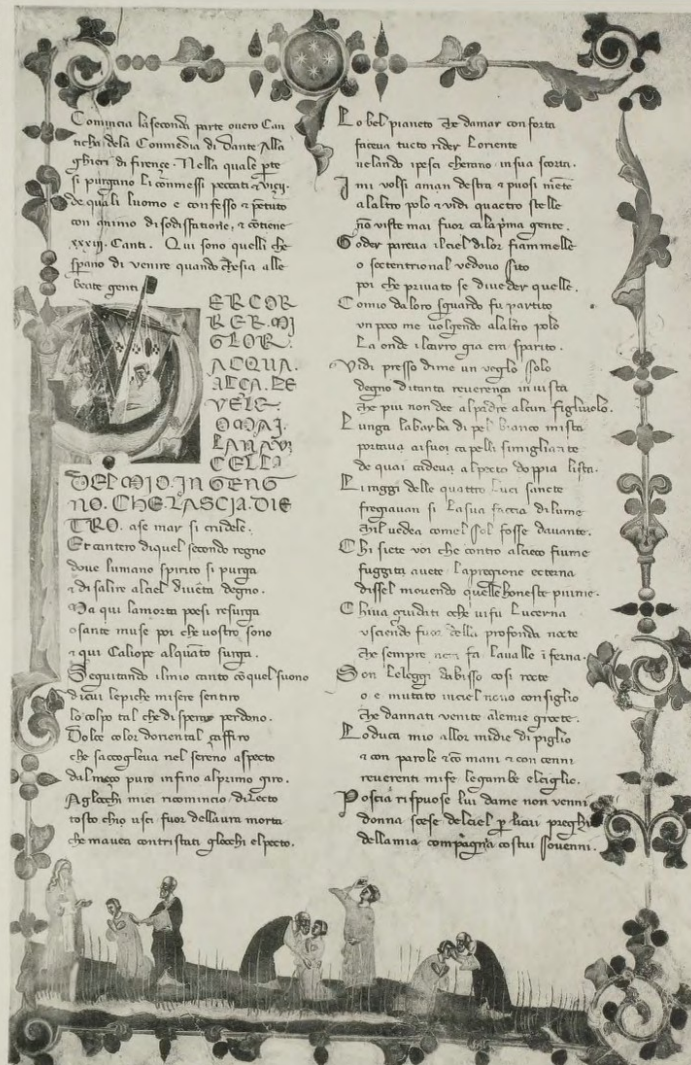 Comincia la seconda parte overo Can
ticha dela Comedia di Dante Alla
ghieri di firençe. Nella quale pte
si purgano li commessi peccati & viçij.
de quali luomo e confesso & pentuto
con animo di sodisfatione, & cõtiene
xxxiij. Canti. Qui sono quelli che
sperano di venire quando chesia alle
beate genti
PER COR
RER. MI
GLOR.
ACQUA.
ALÇA. LE
VELE.
OMAI.
LA NAVI
CELLA
DEL MIO. INGENG
NO. CHE. LASCIA. DIE
TRO. ase mar si crudele.
Et cantero di quel secondo regno
dove lumano spirito si purga
& di salire alciel diventa degno.
Ma qui lamorta poesi resurga
o sante muse poi che vostro sono
& qui Caliope alquãto surga.
Seguitando ilmio canto cõ quel suono
di cui lepiche misere sentiro
lo colpo tal che disperar perdono.
Dolce color doriental çaffiro
che saccoglieva nel sereno aspecto
dal meço puro infino alprimo giro.
Aglocchi miei ricomincio dilecto
tosto chio usci fuor dellaura morta
che mavea contristati glocchi elpecto.
Lo bel pianeto che damar conforta
faceva tucto rider Loriente
velando ipesci cherano insua scorta.
I mi volsi aman destra & puosi mẽte
alaltro polo & vidi quactro stelle
nõ viste mai fuor cala pima gente.
Goder pareva ilciel dilor fiammelle
o sectentrional vedovo sito
poi che privato se diveder quelle.
Comio daloro sguardo fu partito
un poco me volgendo alaltro polo
La onde ilcarro gia era sparito.
Vidi presso dime un veglo solo
degno ditanta reverença invista
che piu non dee alpadre alcun figluolo.
Lunga labarba di pel bianco mista
portava aisuoi capelli simigliante
de quai cadeva alpecto doppia lista.
Li raggi delle quattro luci sancte
fregiavan si lasua faccia dilume
chil vedea comel sol fosse davante.
Chi siete voi che contro alcieco fiume
fuggita avete lapregione ecterna
dissel movendo quelle honeste piume.
Chi va guidati o che vi fu Lucerna
uscendo fuor della profonda nocte
che sempre nera fa lavalle inferna.
Son leleggi dabisso cosi rocte
o e mutato inciel novo consiglio
che dannati venite alemie grocte.
Lo duca mio allor midie di piglio
& con parole & cõ mani & con cenni
reverenti mi fe legambe elciglio.
Poscia rispuose lui dame non venni
donna scese delciel p licui preghi
della mia compagna costui sovenni.